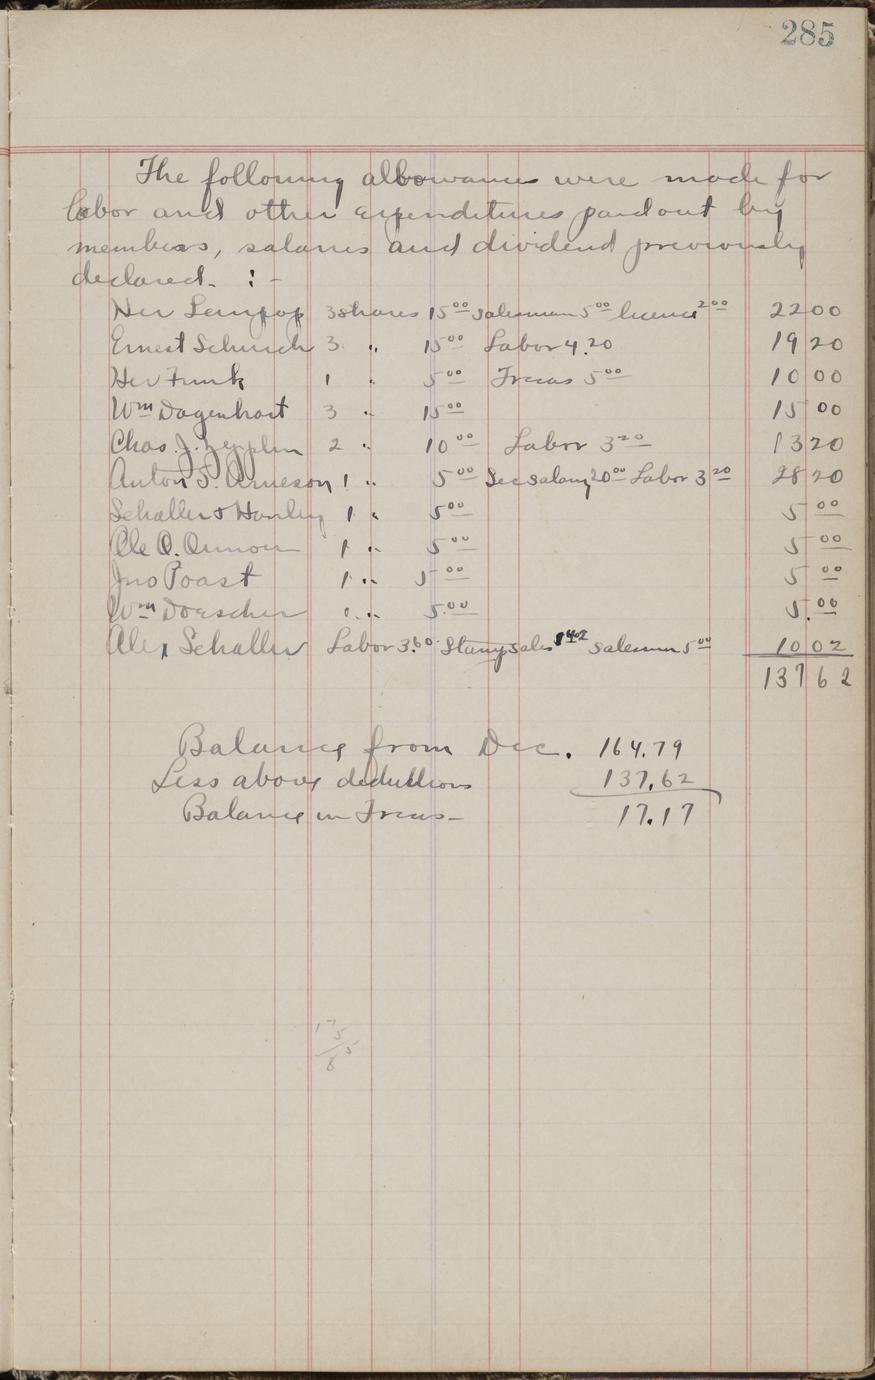 285
The following allowances were made for
labor and other expenditures paid out by
members, salaries and dividend previously
declared. : -
Her Lempop 3 shares 15 00 salesman 5 00 licence 2 00 22 00
Ernest Schuch 3 " 15 00 Labor 4.20 19 20
Her Funk 1 " 5 00 Treas 5 00 10 00
Wm Dagenhart 3 " 15 00 15 00
Chas. J. Zepplin 2 " 10 00 Labor 3 20 13 20
Anton S. Arneson 1 " 5 00 Sec salary 20 00 Labor 3 20 28 20
Schaller & 1 " 5 00 5 00
Ole O. 1 " 5 00 5 00
Jno Poast 1 " 5 00 5 00
Wm Doescher 1 " 5.00 5.00
Alex Schaller Labor 3.60 sales 1 42 salesman 5 00 10 02
137 62
Balance from Dec. 164.79
Less above deductions 137.62
Balance in Treas- 17.17
175
8 5